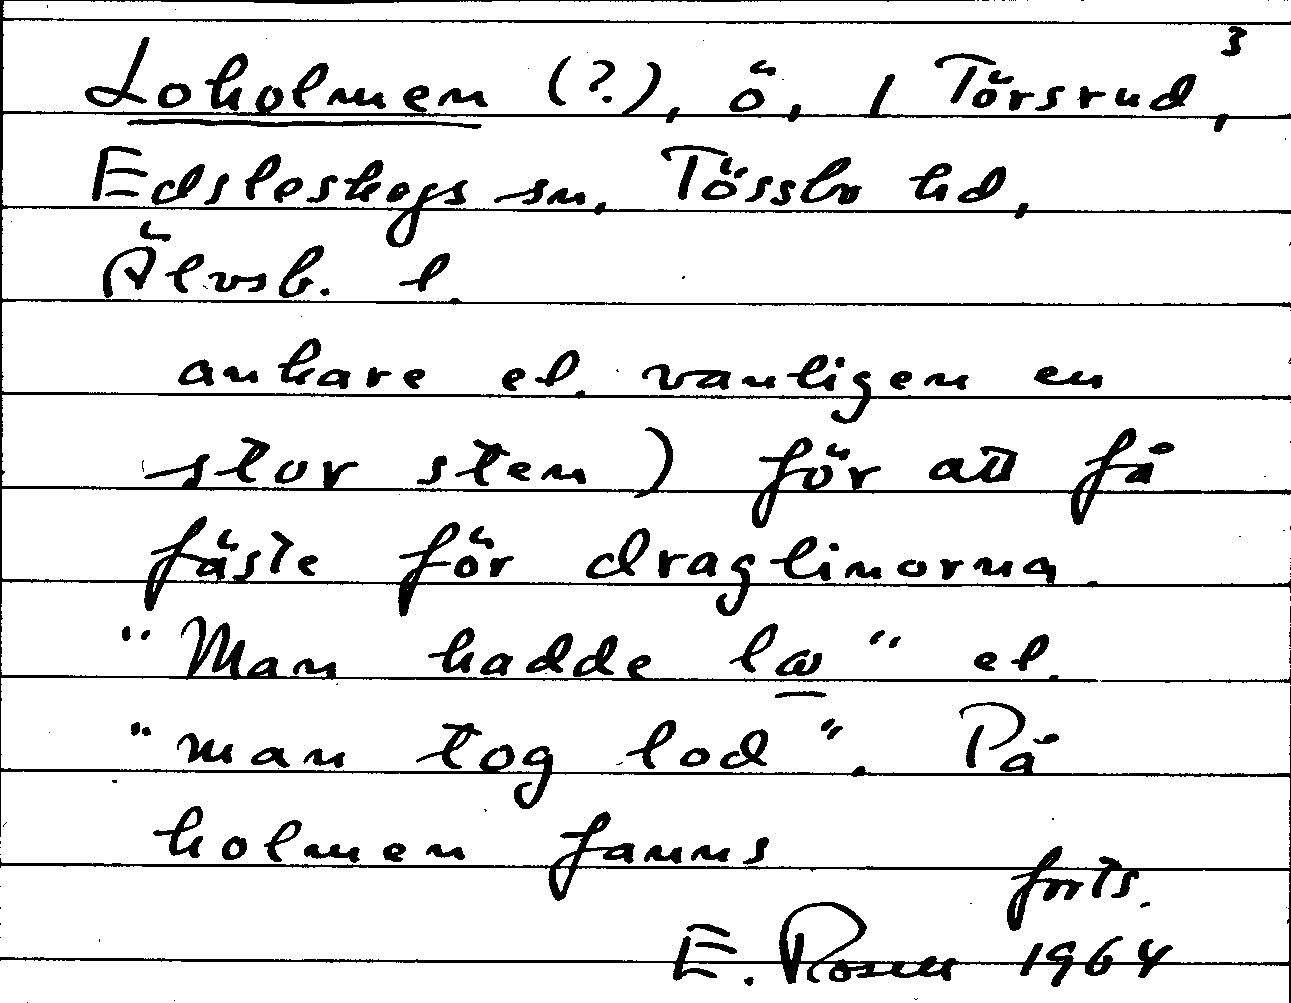 3
Loholmen (?), ö, i Törsrud,
Edsleskogs sn, Tössbo hd,
Älvsb. l.
ankare el. vanligen en
stor sten) för att få
fäste för draglinorna.
"Man hadde la" el.
"man tog lod". På
holmen fanns
forts.
E. Rosell 1964